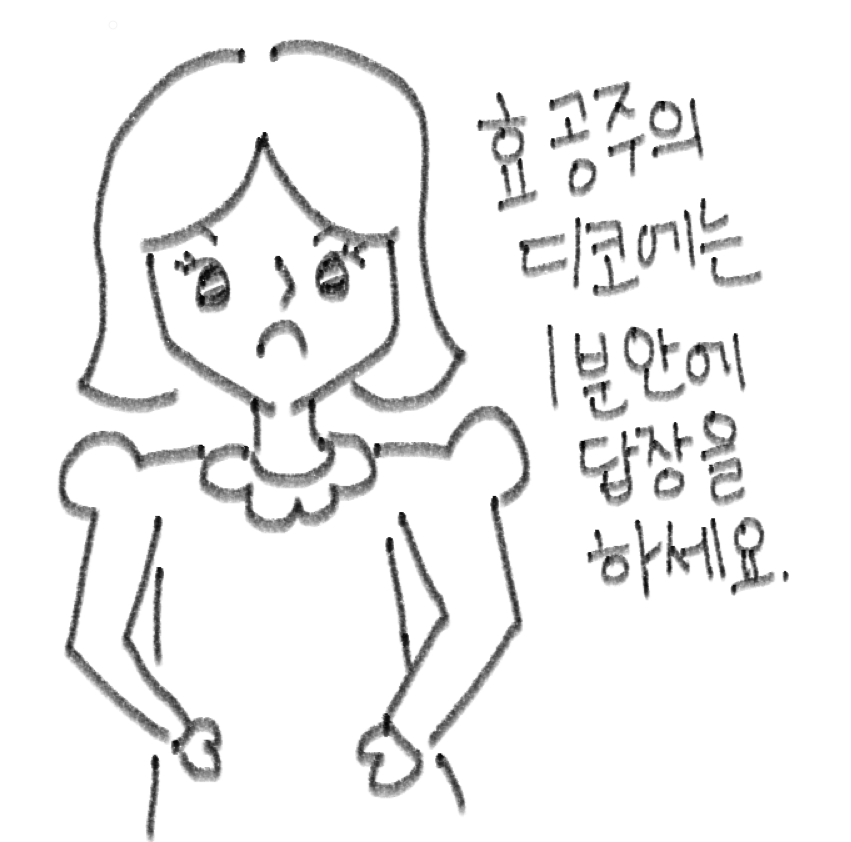 효공주의
디코에는
1분안에
답장을
하세요.